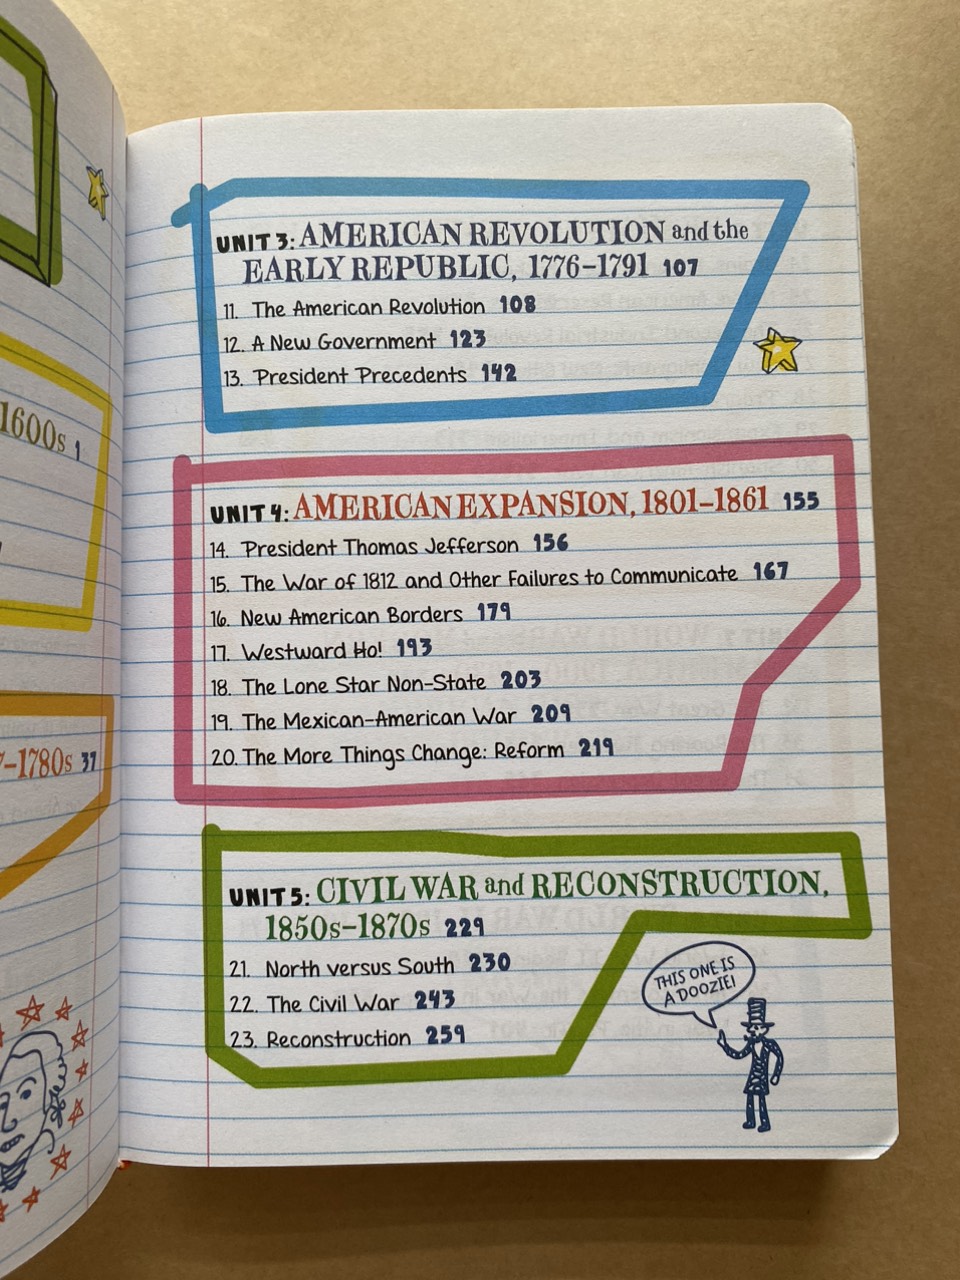 1600s 1
-1780s 37
UNIT 3: AMERICAN REVOLUTION and the
EARLY REPUBLIC, 1776–1791 107
11. The American Revolution 108
12. A New Government 123
13. President Precedents 142
UNIT 4: AMERICAN EXPANSION, 1801–1861 155
14. President Thomas Jefferson 156
15. The War of 1812 and Other Failures to Communicate 167
16. New American Borders 179
17. Westward Ho! 193
18. The Lone Star Non-State 203
19. The Mexican-American War 209
20. The More Things Change: Reform 219
UNIT 5: CIVIL WAR and RECONSTRUCTION,
1850s–1870s 229
21. North versus South 230
22. The Civil War 243
23. Reconstruction 259
THIS ONE IS
A DOOZIE!